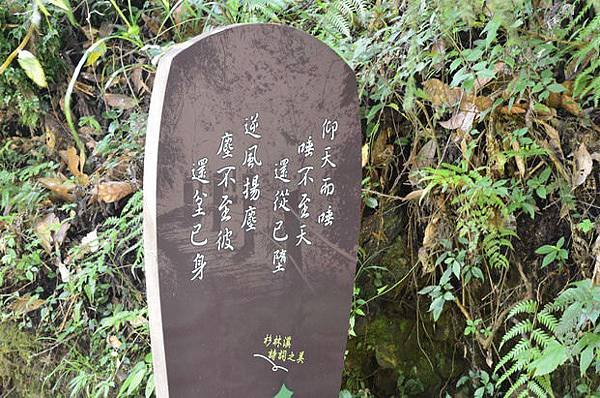 仰天而唾
唾不至天
還從己墮
逆風揚塵
塵不至彼
還坌己身
杉林溪
詩詞之美